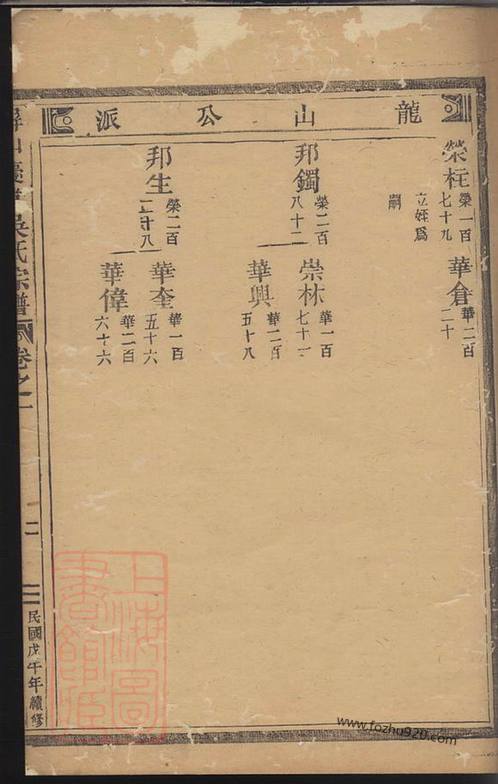 龍山公派
榮柱 榮一百七十九
立姪爲嗣
華倉 華二百二十
邦鐲 榮二百八十二
崇林 華一百七十一
華興 華二百五十八
邦生 榮二百
華奎 華一百五十六
華偉 華二百六十六
吳氏宗譜
卷之一
二
民國戊午年續修
上海圖書館藏
www.fozhu920.com